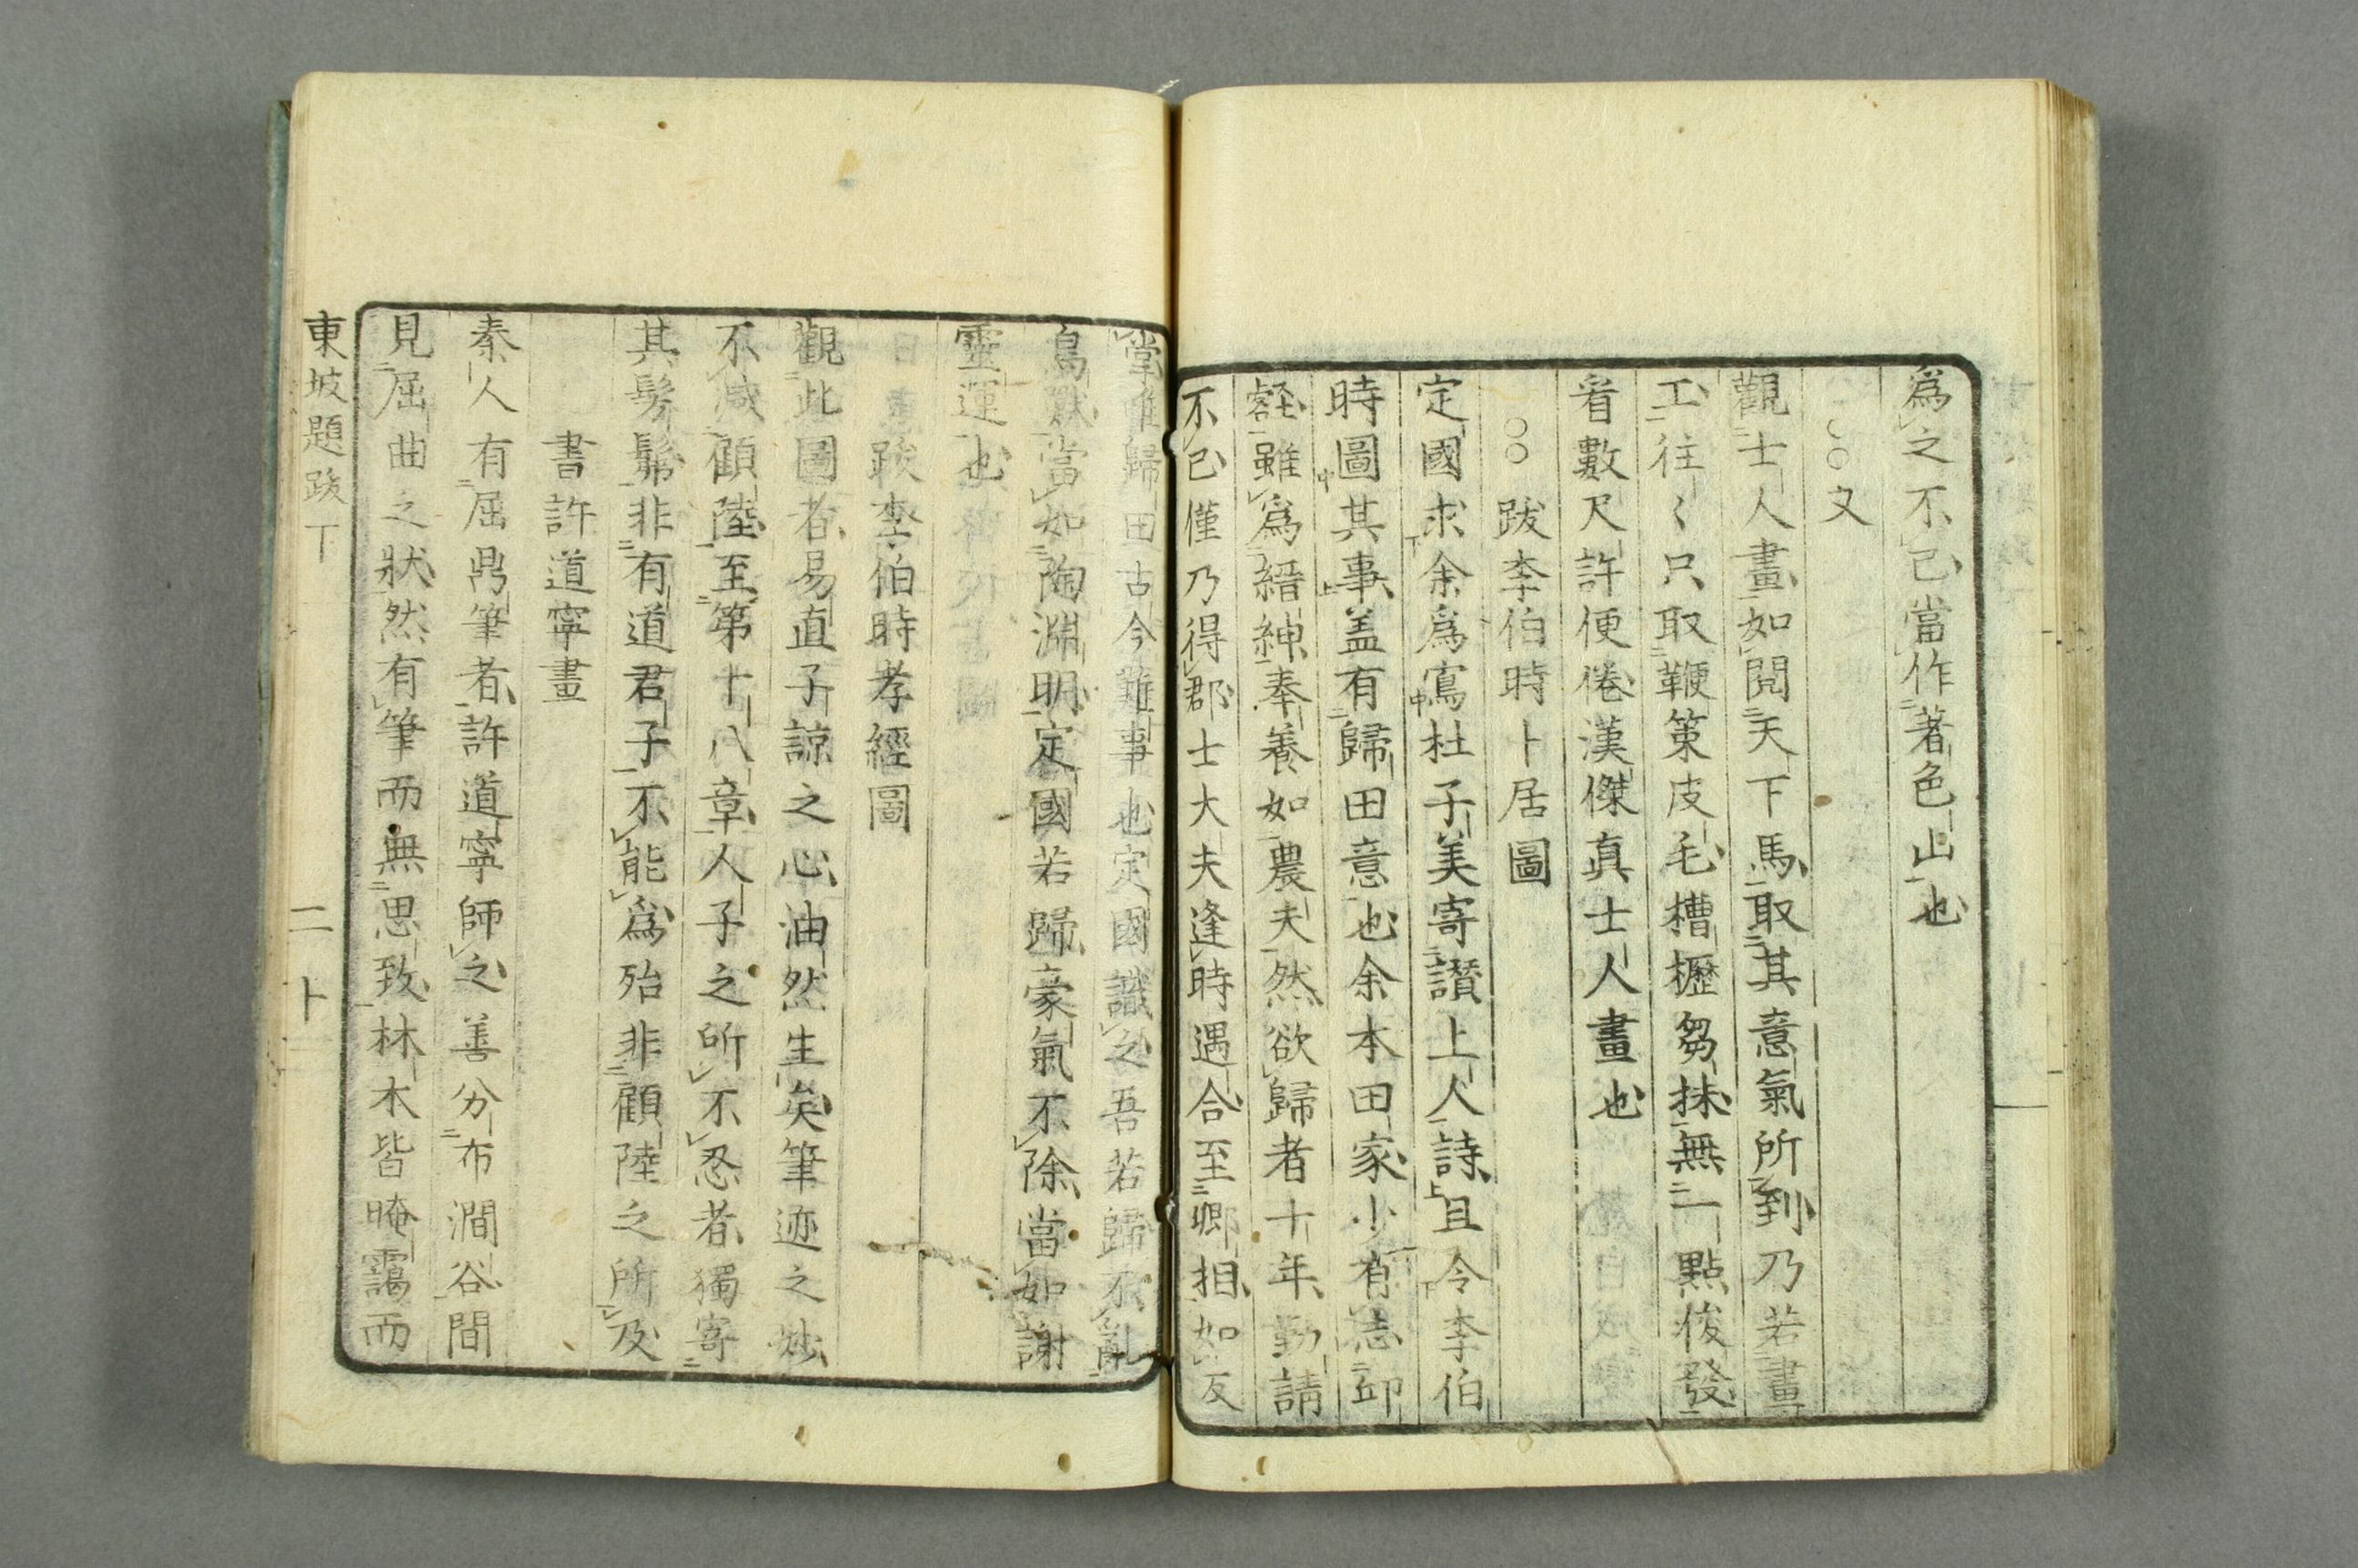 爲之不已當作著色山也
〇〇又
觀士人畫如閲天下馬取其意氣所到乃若畫
工往〻只取鞭策皮毛槽櫪芻抹無一點俊發
看數尺許便倦漢傑真士人畫也
〇〇跋李伯時卜居圖
定國求余爲寫杜子美寄讃上人詩且令李伯
時圖其事盖有歸田意也余本田家少有志丘
壑雖爲縉紳奉養如農夫然欲歸者十年勤請
不已僅乃得郡士大夫逢時遇合至卿相如反
掌唯歸田古今難事也定國識之吾若歸不亂
鳥獸當如陶淵明定國若歸豪氣不除當如謝
靈運也
跋李伯時孝經圖
觀此圖者易直子諒之心油然生矣筆迹之妙
不减顧陸至第十八章人子之所不忍者獨寄
其髣髴非有道君子不能爲殆非顧陸之所及
書許道寧畫
秦人有屈鼎筆者許道寧師之善分布澗谷間
見屈曲之狀然有筆而無思致林木皆晻靄而
東坡題跋下 二十